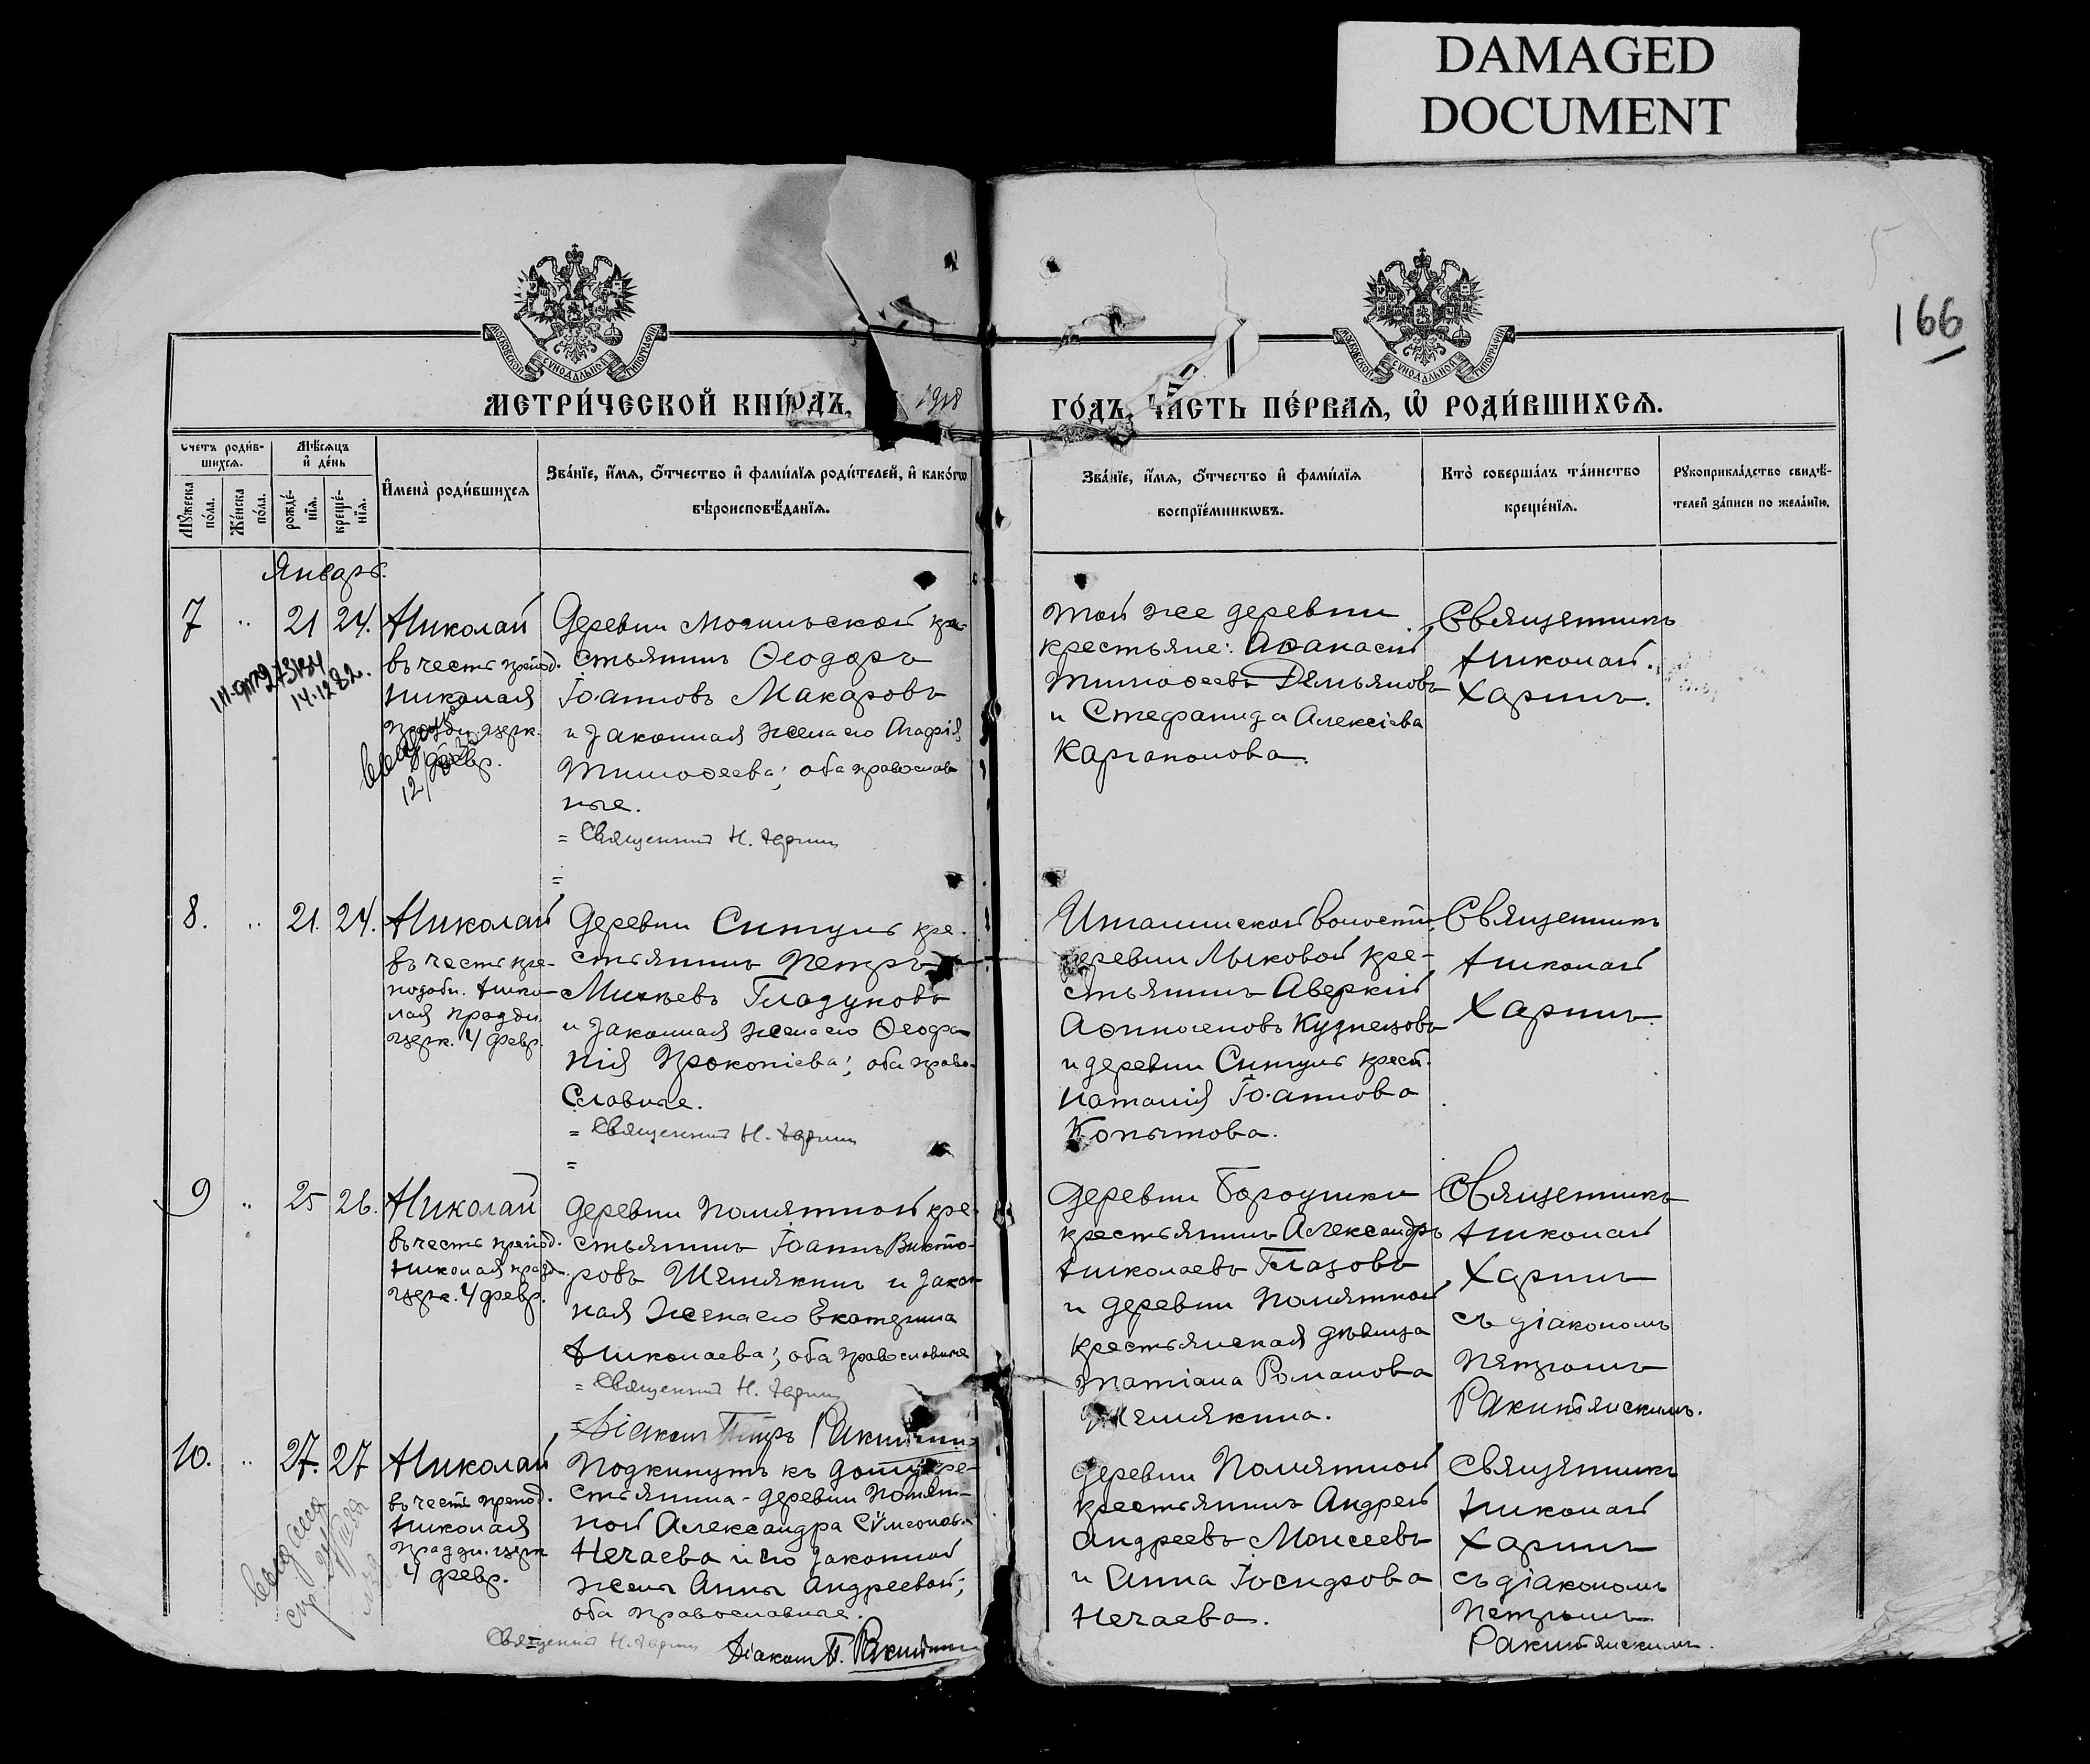 DAMAGED
DOCUMENT
166
МОСКОВСКОЙ СѴНОДАЛЬНОЙ ТИПОГРАФІИ
МОСКОВСКОЙ СѴНОДАЛЬНОЙ ТИПОГРАФІИ
МЕТРИ́ЧЕСКОЙ КНИ́ГИ
1918
ГО́ДЪ, ЧАСТЬ ПЕ́РВАЯ, Ѡ҆ РОДИ́ВШИХСЯ.
Счетъ роди́в-
шихся.
Мѣ́сяцъ
и҆ де́нь
Мꙋ́жеска
по́ла.
Же́нска
по́ла.
рожде́-
нїя.
креще́-
нїя.
И҆мена̀ роди́вшихся
Зва́нїе, и҆́мя, ѻ҆́тчество и҆ фами́лїя роди́телей, и҆ како́гѡ
вѣроисповѣ́данїя.
Зва́нїе, и҆́мя, ѻ҆́тчество и҆ фами́лїя
воспрїе́мникѡвъ.
Кто̀ соверша́лъ та́инство
креще́нїя.
Рꙋкоприкла́дство свидѣ́-
телей за́писи по жела́нїю.
Январь.
7 " 21 24. Николай
въ честь препод.
Николая
праздн. церк.
4 февр.
Деревни Могильской кре-
стьянинъ Ѳеодоръ
Іоанновъ Макаровъ
и законная жена его Агафія
Тимоѳеева; оба православ
ные.
= Священникъ Н. Харинъ
=
Той же деревни
крестьяне: Аѳанасій
Тимоѳеевъ Демьяновъ
и Стефанида Алексіева
Каргаполова.
Священникъ
Николай
Харинъ.
14.12.82.
8. " 21. 24. Николай
въ честь пре-
подобн. Нико-
лая праздн.
церк. 4 февр.
Деревни Ситулъ кре-
стьянинъ Петръ
Михѣевъ Гладуновъ
и законная жена его Ѳеофа
нія Прокопіева; оба право-
славные.
= Священникъ Н. Харинъ
=
деревни Лыковой кре-
стьянинъ Аверкій
Кузнецовъ
и деревни Ситулъ крест.
Наталія Іоаннова
Копытова.
Священникъ
Николай
Харинъ.
9 " 25 26. Николай
въ честь препод.
Николая празд.
церк. 4 февр.
Деревни Помятной кре-
стьянинъ Іоаннъ Викто-
ровъ Шемякинъ и закон
ная жена его Екатерина
Николаева; оба православные
= Священникъ Н. Харинъ
= Діаконъ Петръ
Деревни
крестьянинъ Александръ
Николаевъ Глазовъ
и деревни Помятной
крестьянская дѣвица
Татіана Романова
Шемякина.
Священникъ
Николай
Харинъ
съ діакономъ
Петромъ
Ракитянскимъ.
10. " 27. 27 Николай
въ честь препод.
Николая
праздн. церк
4 февр.
Подкинутъ къ дому кре-
стьянина деревни Помят-
ной Александра Сѵмеонова
Нечаева и его законной
жены Анны Андреевой;
оба православные.
Священникъ Н. Харинъ
Діаконъ П.
Деревни Помятной
крестьянинъ Андрей
Андреевъ Моисеевъ
и Анна Іосифова
Нечаева.
Священникъ
Николай
Харинъ
съ діакономъ
Петромъ
Ракитянскимъ.